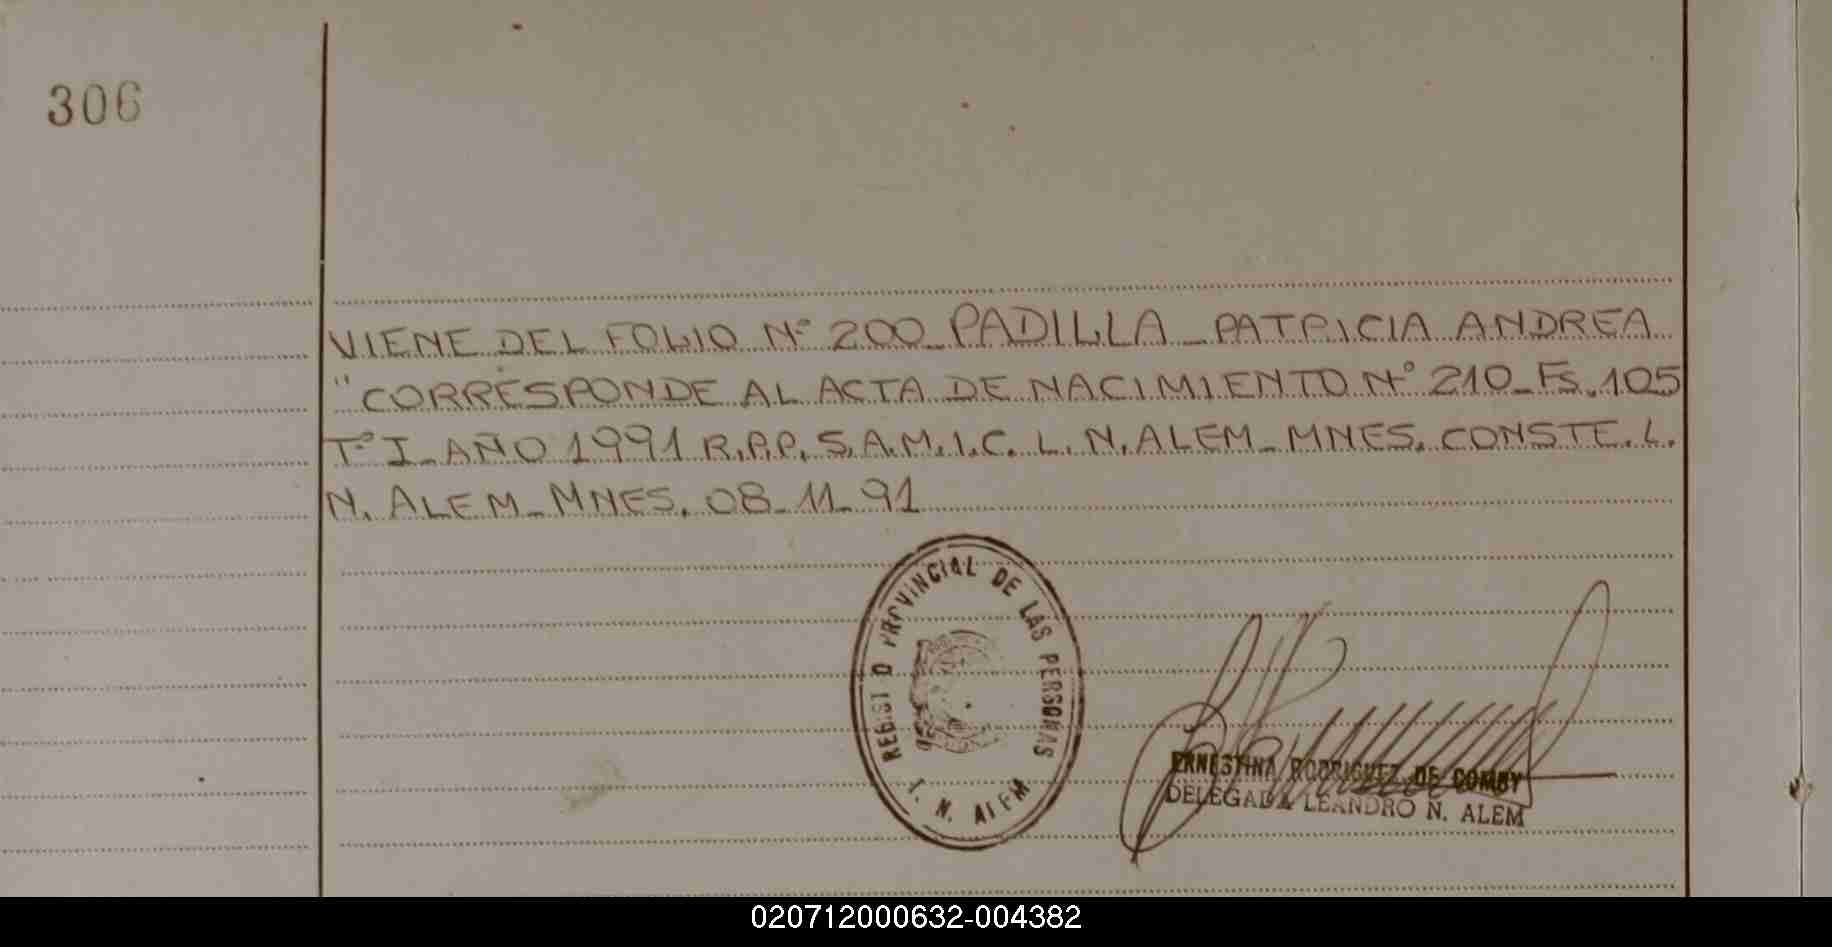 306
VIENE DEL FOLIO Nº 200_ PADILLA _ PATRICIA ANDREA
"CORRESPONDE AL ACTA DE NACIMIENTO Nº 210_ Fs. 105
Tº I_ AÑO 1991 R.P.P. S.A.M.I.C. L. N. ALEM_ MNES. CONSTE. L.
N. ALEM_ MNES. 08_11_91
REGIST O PROVINCIAL DE LAS PERSONAS
L. N. ALEM
ERNESTINA RODRIGUEZ DE COMBY
DELEGADA LEANDRO N. ALEM
020712000632-004382